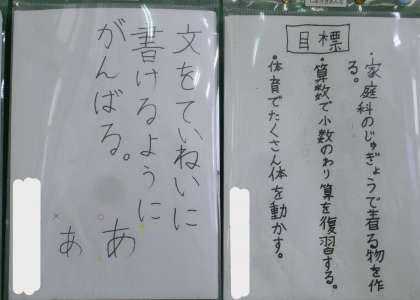 文をていねいに
書けるように
がんばる。
あ
あ
目標
・家庭科のじゅぎょうで着る物を作
る。
・算数で小数のわり算を復習する。
・体育でたくさん体を動かす。